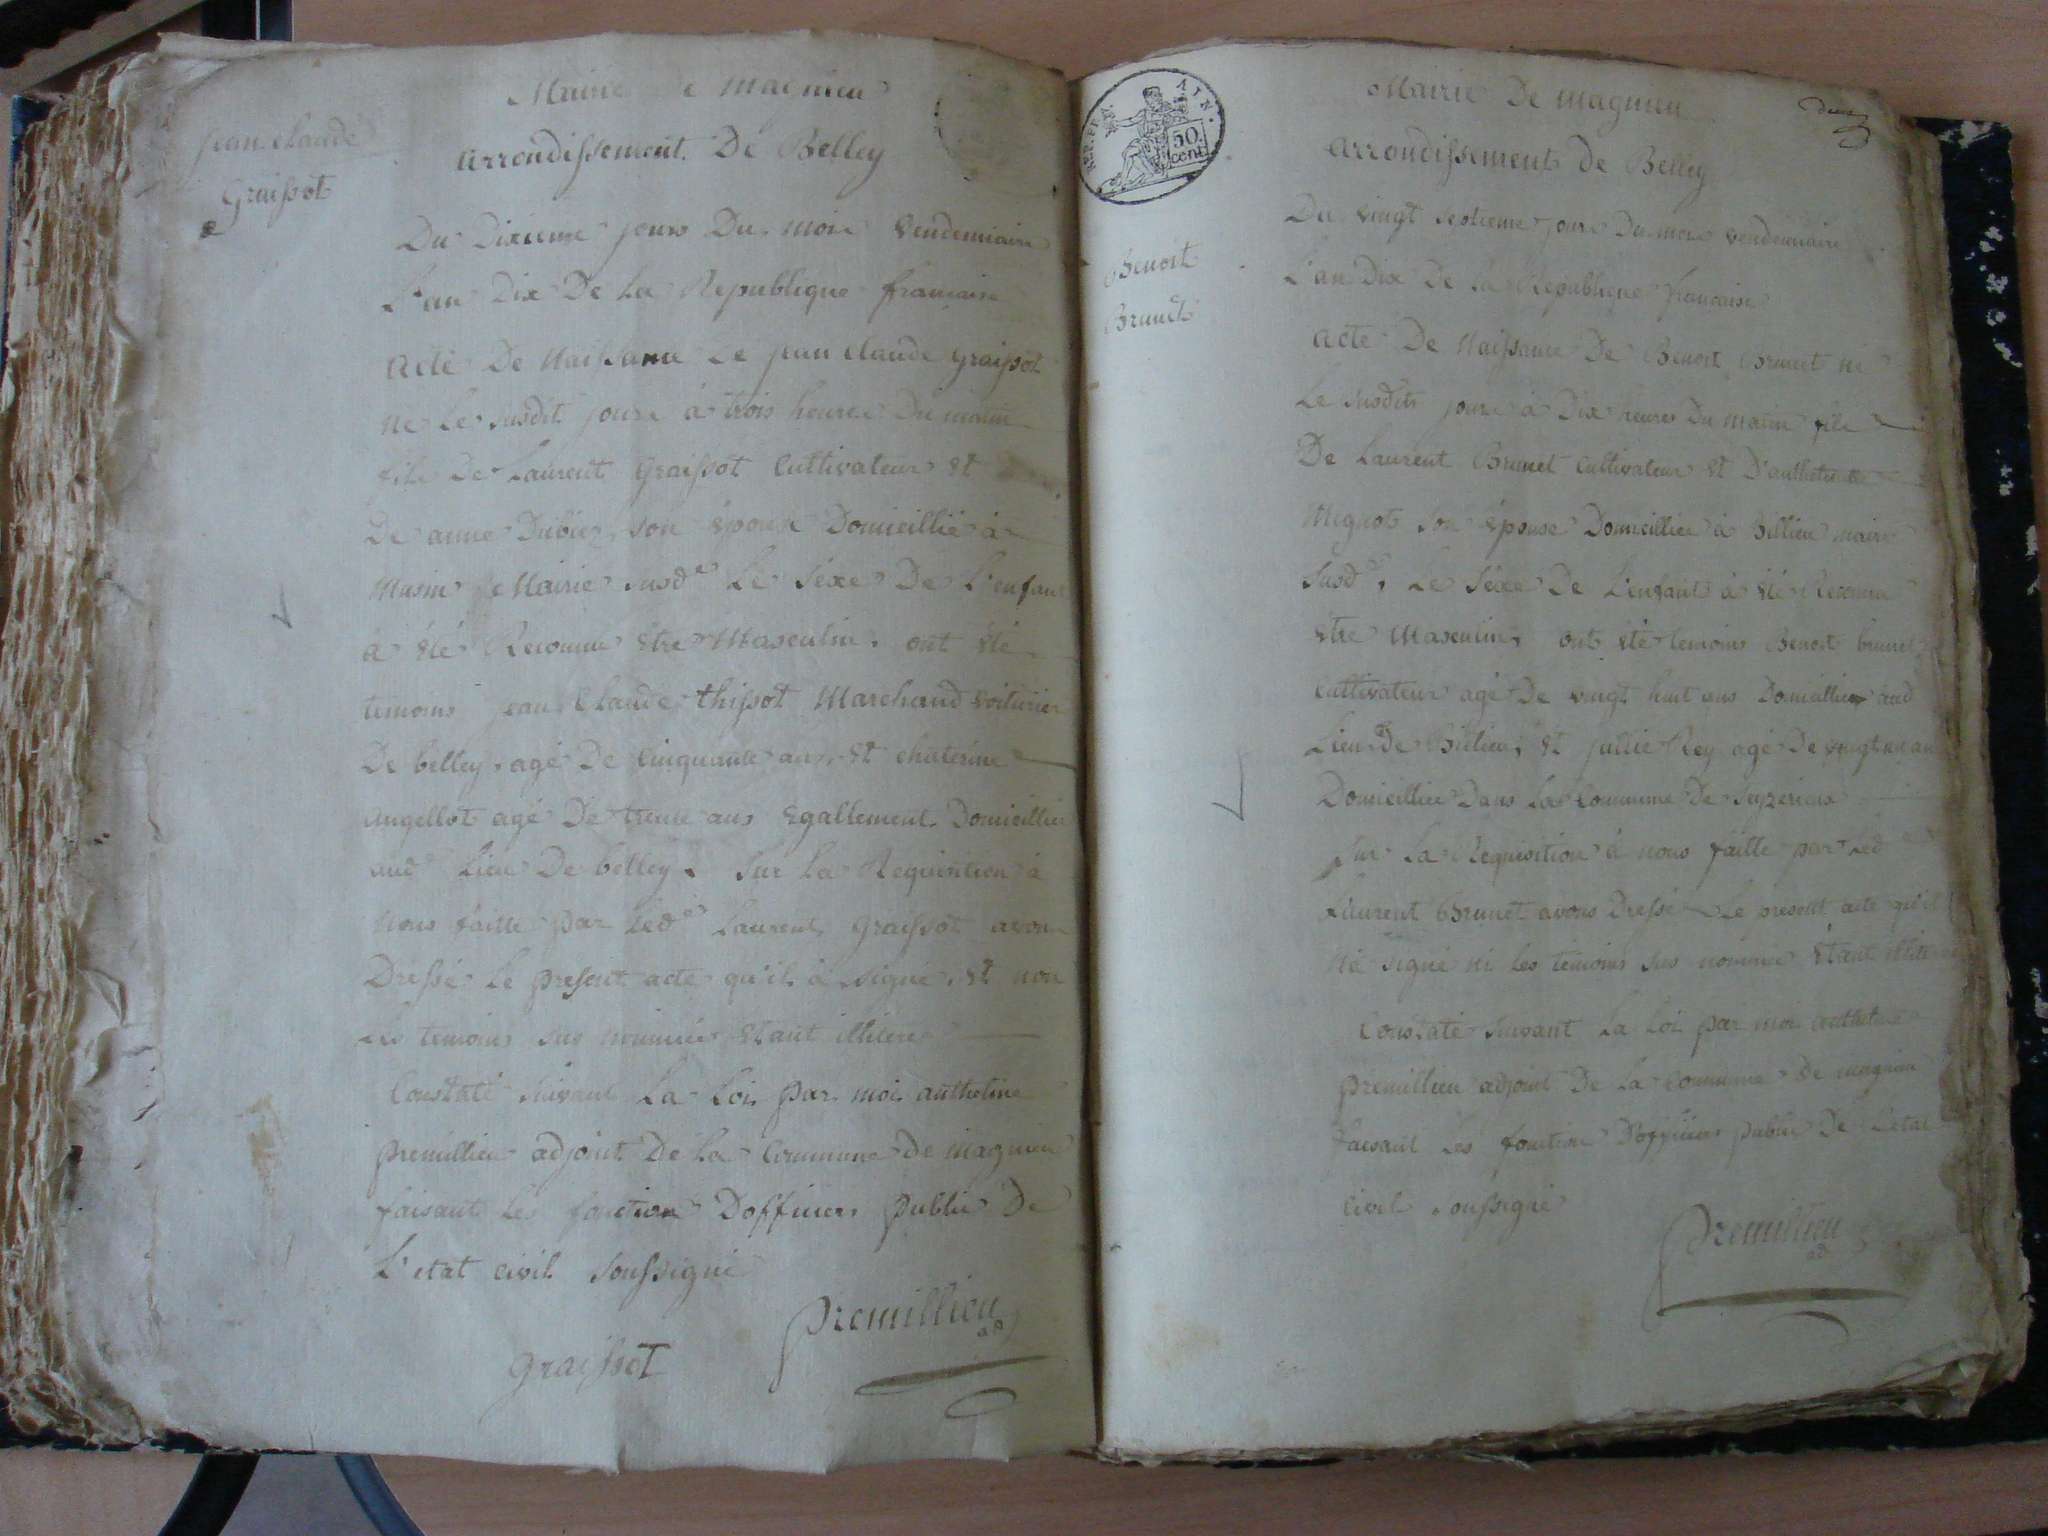 Mairie de magnieu
Arrondissement De Belley
jean claude
Graissot
Du Dixieme jours Du mois vendemiaire
L'an Dix De La Republique francaise
Acte De Naissance De jean claude graissot
ne Le susdit jours à trois heures Du matin
fils De Laurent Graissot Cultivateur et
De anne Dubiez son épouse Domicillié à
Musin Mairie susd.e Le séxe De L'enfant
à été Reconnu être Masculin. ont été
temoins jean Claude thissot Marchand voiturier
De belley, agé De Cinquante ans, et chaterine
angellot agé De trente ans Egallement Domicillier
aud Lieu De belley. Sur La Requisition à
Nous faitte par Led. Laurent graissot avons
Dressé Le present acte qu'il à signé, et non
Les temoins sus nommés étant illitere
Constaté suivant La Loi par moi anthelme
premillieu adjoint De La Commune De magnieu
faisant les fonction Dofficier public De
L'etat civil soussigné
premillieu
ad
graissot
REP. FRA. AIN.
50 cent
Mairie De magnieu
deux
Arrondissement de Belley
Benoit
Brunet
Du vingt septieme jours Du mois vendemiaire
L'an Dix De La Republique francaise
Acte De Naissance De Benoit Brunet né
Le susdit jours à Dix heures Du matin fils
De Laurent Brunet Cultivateur et D'anthelmette
Mignot son épouse Domicillier à Billieu mairie
susd.e, Le séxe De L'enfant à été Reconnu
être Masculin, ont été temoins Benoit brunet
cultivateur agé De vingt huit ans Domicillier aud
Lieu De Billieu, et jullie Rey agé De vingt un an
Domicilliée Dans La Commune De seyzerieux
Sur La Requisition à nous faitte par Led
Laurent Brunet avons Dressé Le present acte qu'il
Né signé ni les temoins sus nommés étant illitere
Constaté suivant La Loi par moi anthelme
premillieu adjoint De La Commune De magnieu
faisant les fonction D'officier public De L'etat
civil soussigné
premillieu
ad